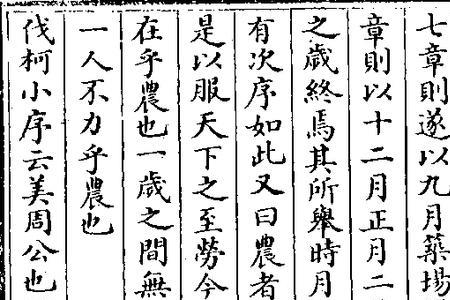 七章則遂以九月築場
章則以十二月正月二
之歲終焉其所舉時月
有次序如此又曰農者
是以服天下之至勞今
在乎農也一歲之間無
一人不力乎農也
伐柯小序云美周公也